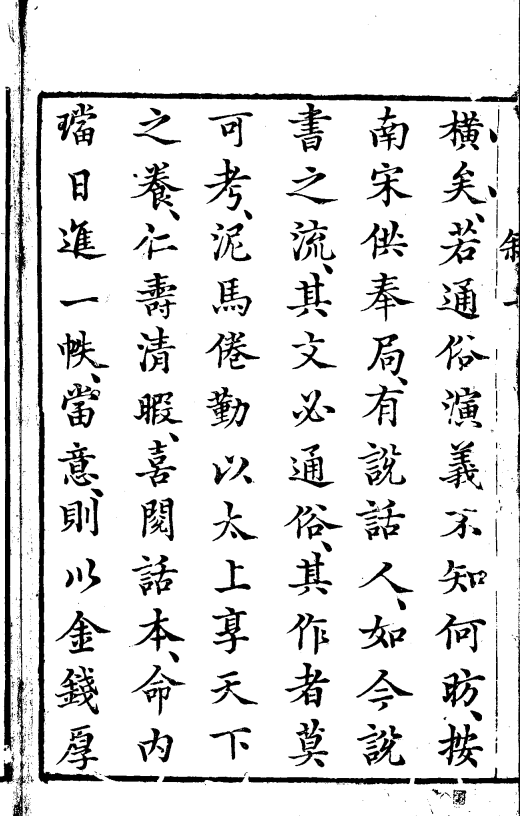 橫矣、若通俗演義不知何昉、按
南宋供奉局、有說話人、如今說
書之流、其文必通俗、其作者莫
可考、泥馬倦勤以太上享天下
之養、仁壽清暇、喜閱話本、命內
璫日進一帙、當意、則以金錢厚